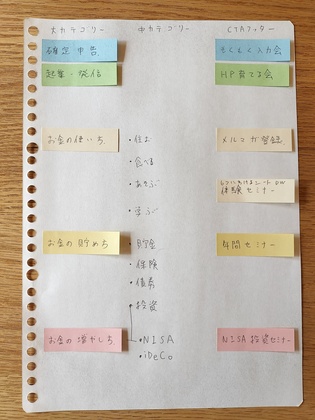 大カテゴリー　中カテゴリー　CTAフッター
確定申告　もくもく入力会
起業・発信　HP育てる会
お金の使い方　・住む　メルマガ登録
・食べる
・あそぶ　体験セミナー
・学ぶ
お金の貯め方　・貯金　年間セミナー
・保険
・債券
・投資
お金の増やし方　・NISA　NISA投資セミナー
・iDeCo